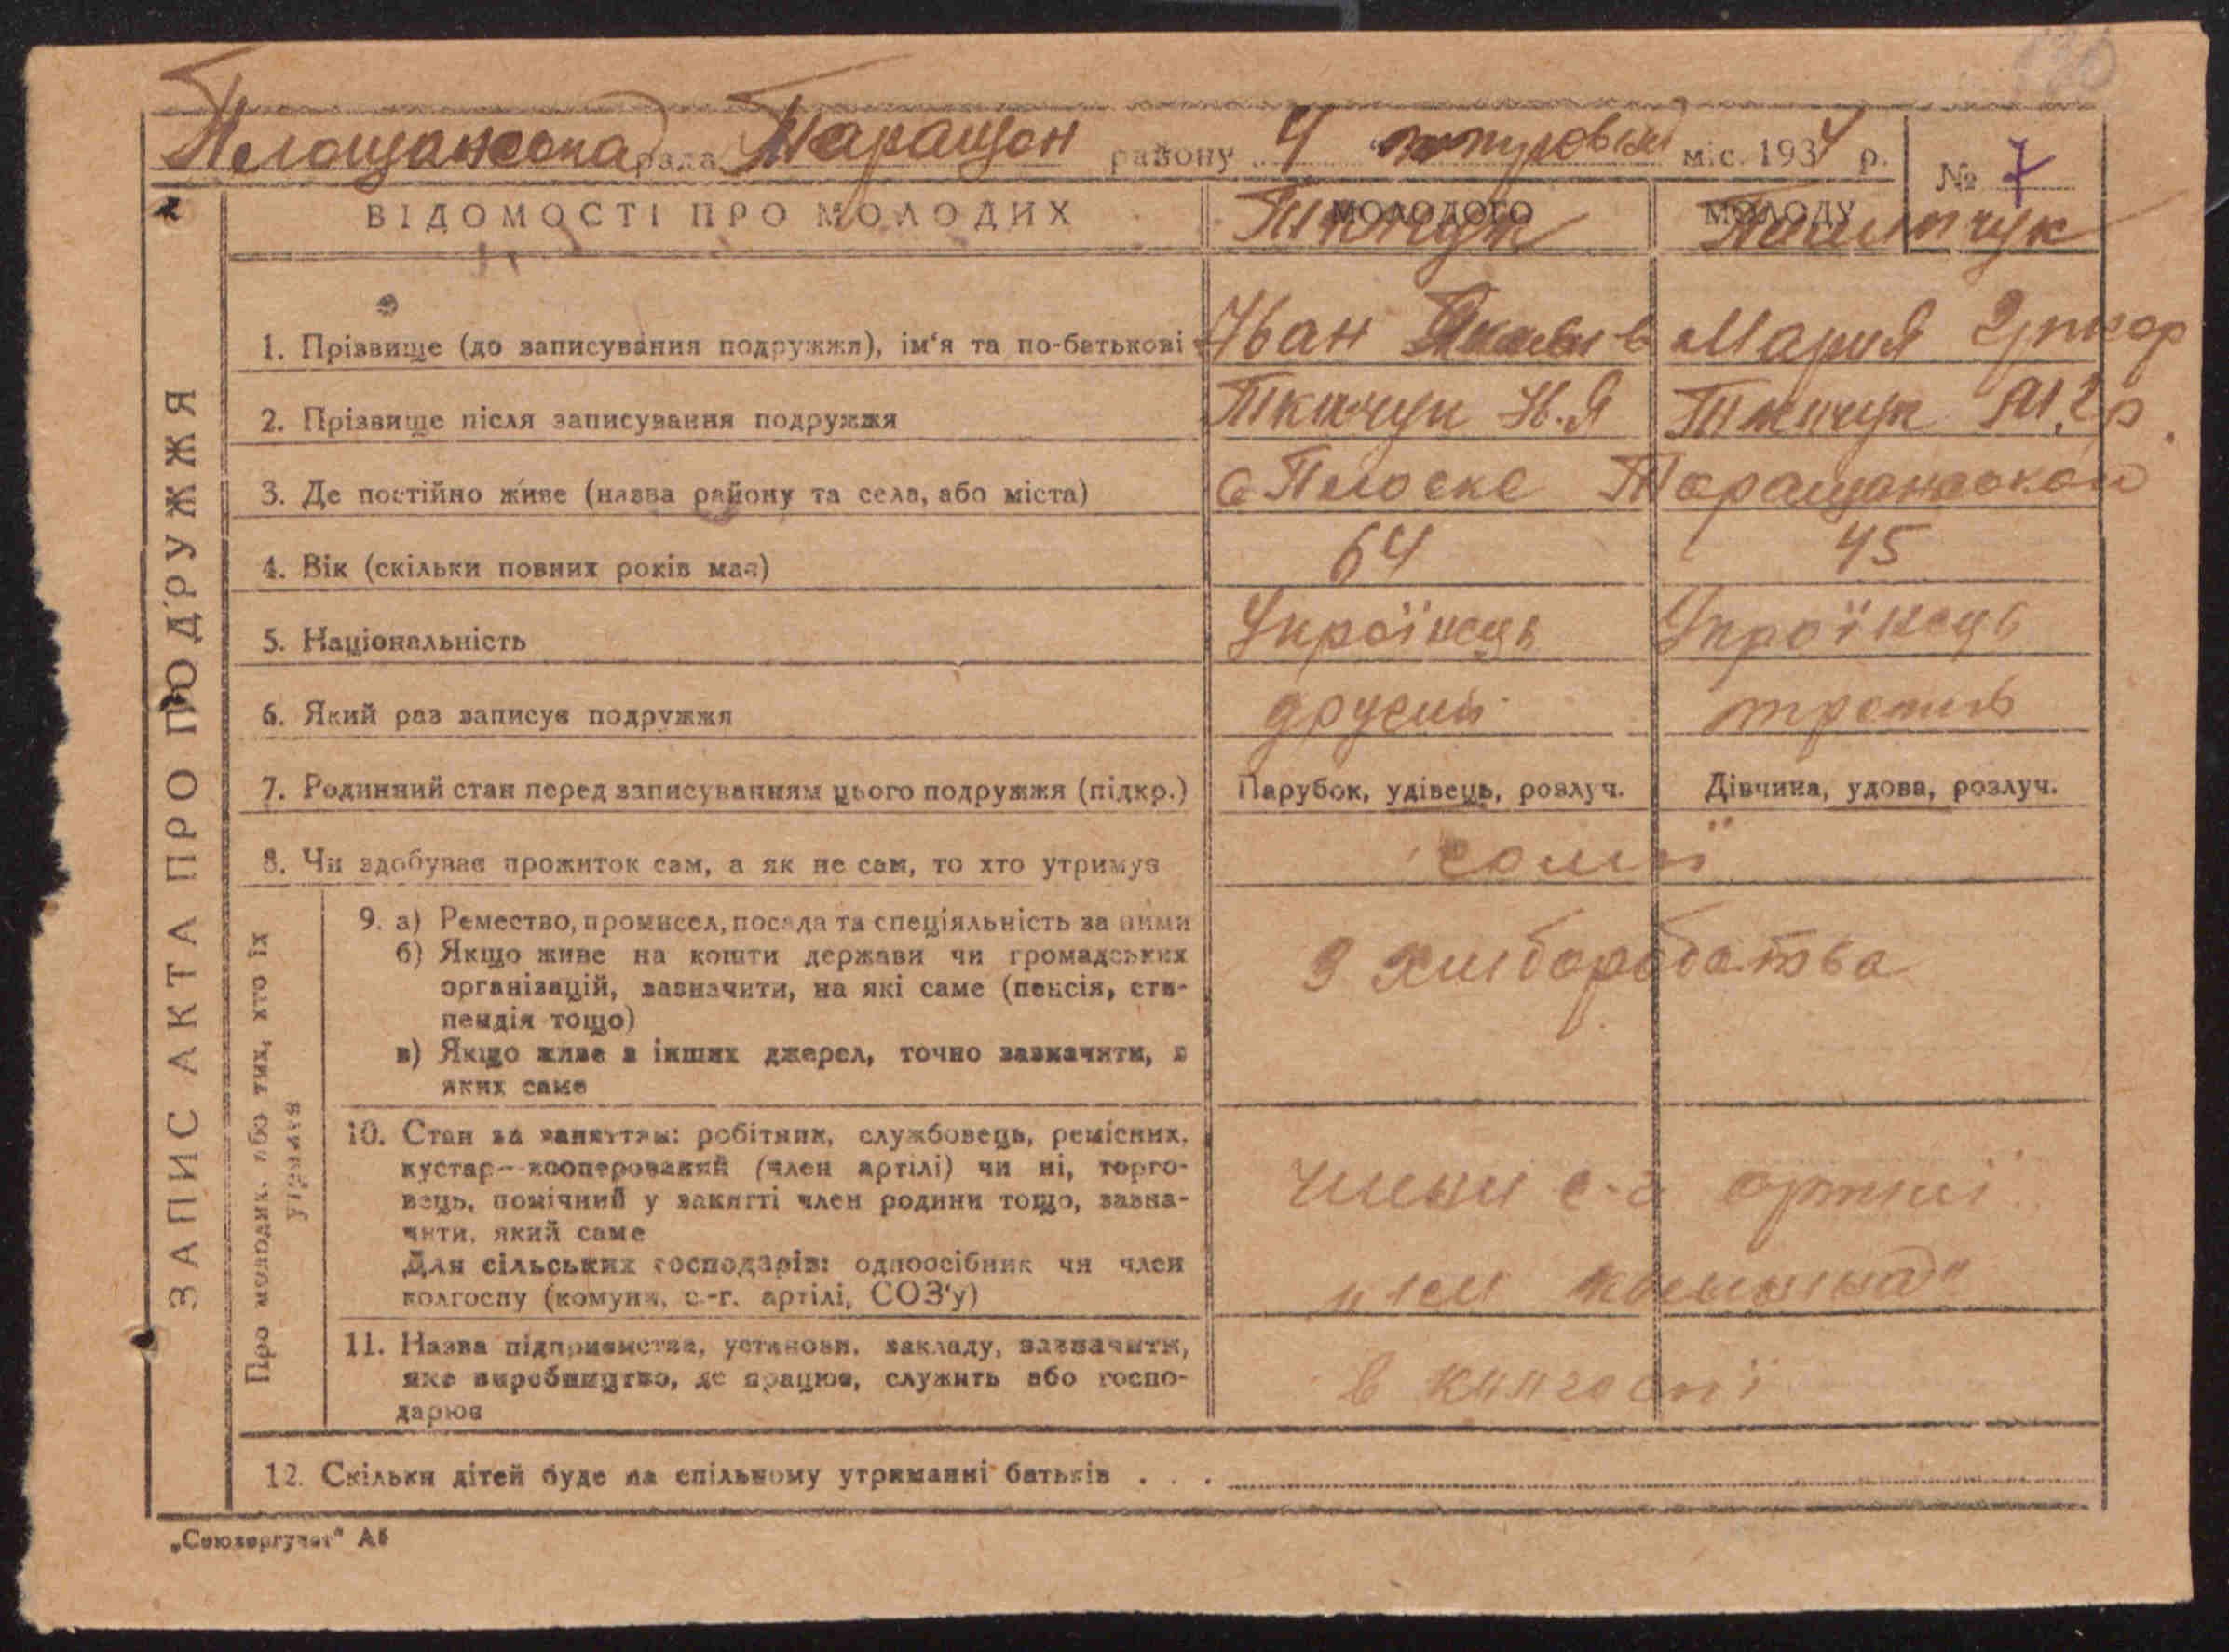 Площанська рада Таращан району 4 міс. 1934 р. № 7
ВІДОМОСТІ ПРО МОЛОДИХ МОЛОДОГО МОЛОДУ
Ткачук
1. Прізвище (до записування подружжя), ім'я та по-батькові Иван Яковів Мария Григор
2. Прізвище після записування подружжя Ткачук И.Я Ткачук М.Гр.
3. Де постійно живе (назва району та села, або міста) с Плоске Таращанского
4. Вік (скільки повних років має) 64 45
5. Національність Українець Українець
6. Який раз записує подружжя другий третий
7. Родинний стан перед записуванням цього подружжя (підкр.) Парубок, удівець, розлуч. Дівчина, удова, розлуч.
8. Чи здобуває прожиток сам, а як не сам, то хто утримує самі
9. а) Ремество, промисел, посада та спеціяльність за ними
б) Якщо живе на кошти держави чи громадських з хліборобства
організацій, зазначити, на які саме (пенсія, сти-
пендія тощо)
в) Якщо живе з інших джерел, точно зазначити, з
яких саме
10. Стан за заняттям: робітник, службовець, ремісник,
кустар--кооперований (член артілі) чи ні, торго-
вець, помічний у занятті член родини тощо, зазна- члени с-г артілі
чити, який саме
Для сільських господарів: одноосібник чи член
колгоспу (комуни, с.-г. артілі, СОЗ'у)
11. Назва підприємства, установи, закладу, зазначити,
яке виробництво, де працює, служить або госпо- в колгоспі
дарює
12. Скільки дітей буде на спільному утриманні батьків . . .
ЗАПИС АКТА ПРО ПОДРУЖЖЯ
Про молодих, або тих, хто їх
утримує
„Союзоргучет" А5